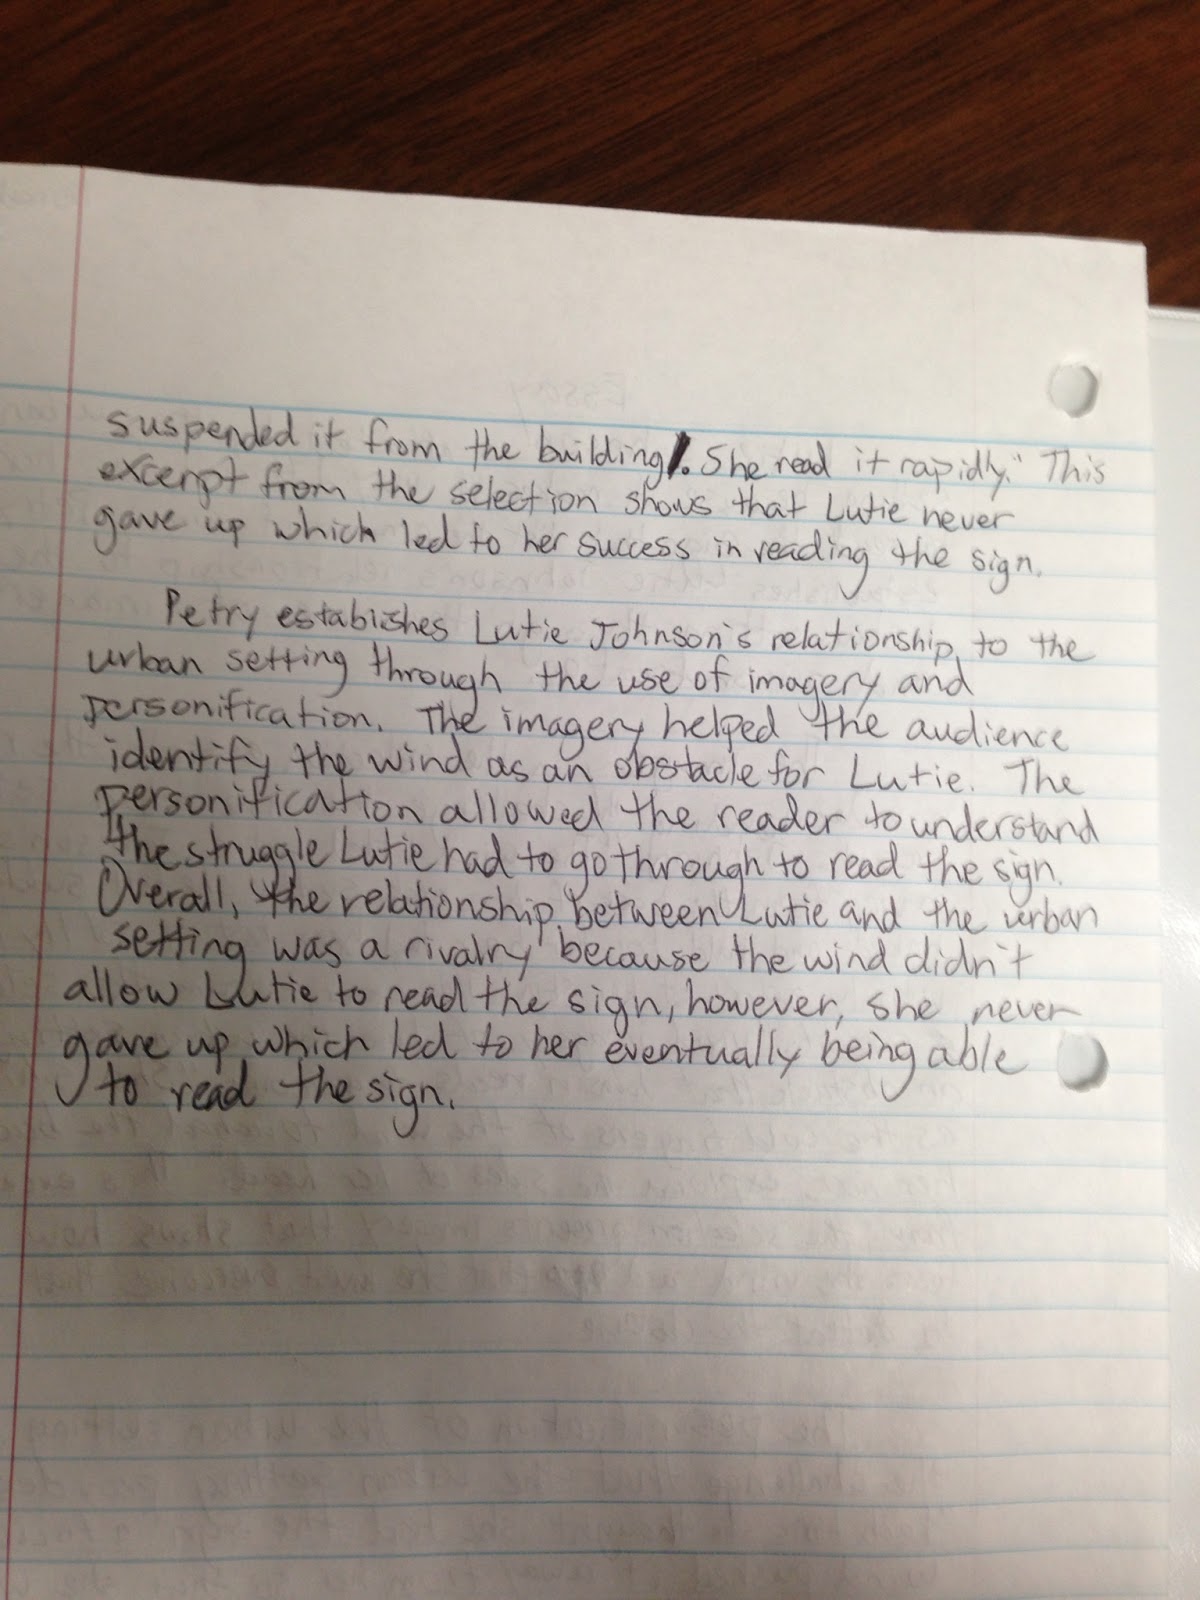 suspended it from the building. She read it rapidly." This
excerpt from the selection shows that Lutie never
gave up which led to her success in reading the sign.
Petry estabishes Lutie Johnson's relationship to the
urban setting through the use of imagery and
personification. The imagery helped the audience
identify the wind as an obstacle for Lutie. The
personification allowed the reader to understand
the struggle Lutie had to go through to read the sign.
Overall, the relationship between Lutie and the urban
setting was a rivalry because the wind didn't
allow Lutie to read the sign, however, she never
gave up which led to her eventually being able
to read the sign.